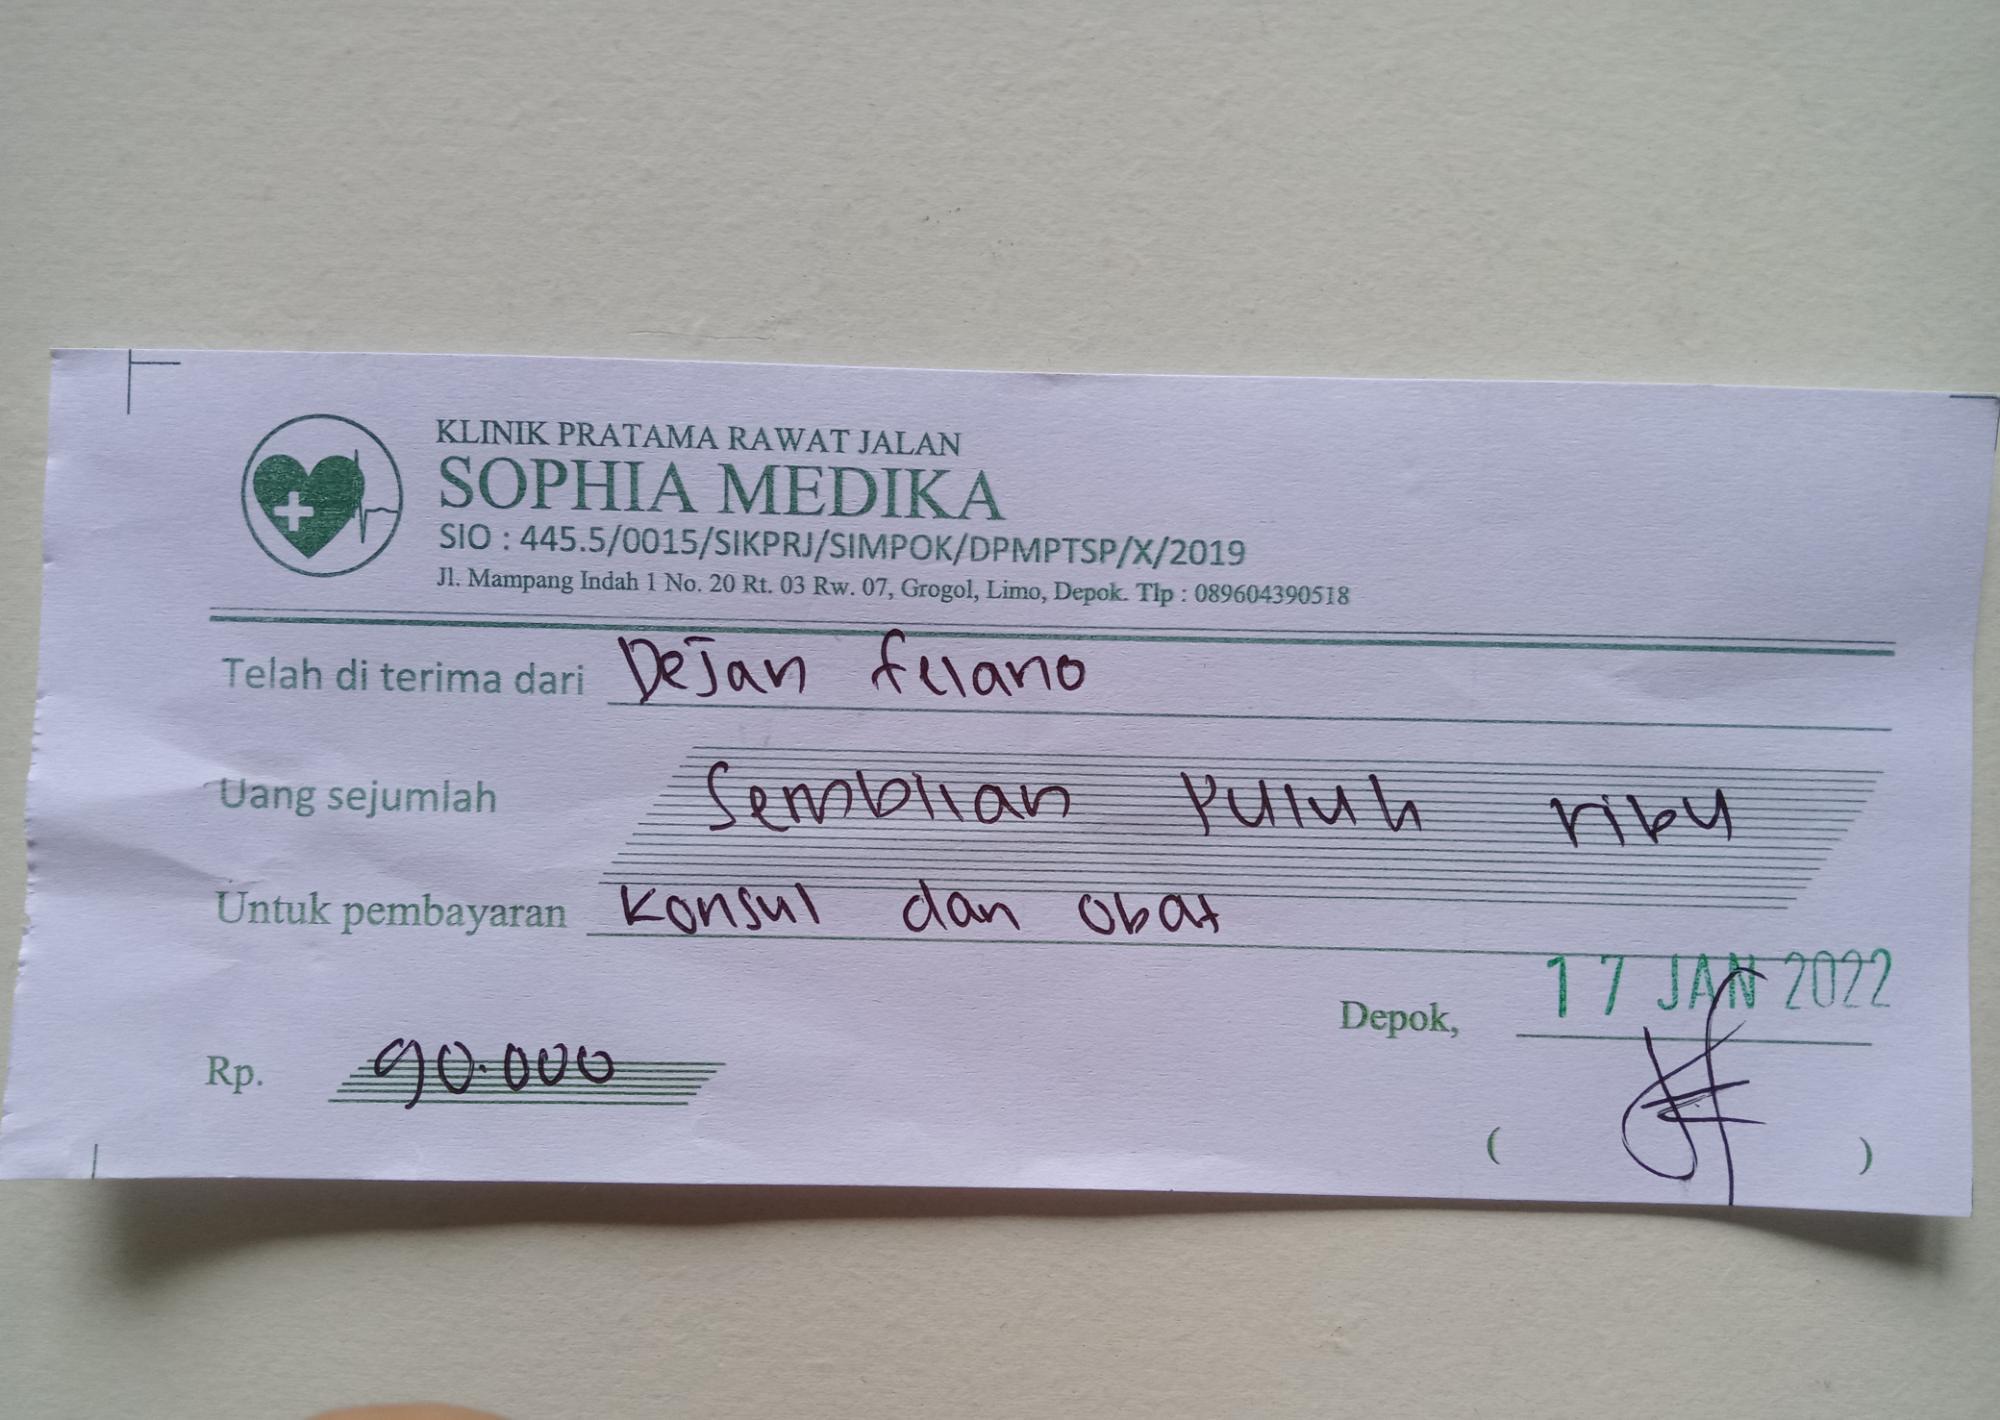 KLINIK PRATAMA RAWAT JALAN
SOPHIA MEDIKA
SIO : 445.5/0015/SIKPRJ/SIMPOK/DPMPTSP/X/2019
Jl. Mampang Indah 1 No. 20 Rt. 03 Rw. 07, Grogol, Limo, Depok. Tlp : 089604390518
Telah di terima dari Dejan felano
Uang sejumlah Sembilan Puluh ribu
Untuk pembayaran Konsul dan obat
Depok, 17 JAN 2022
Rp. 90.000
( )